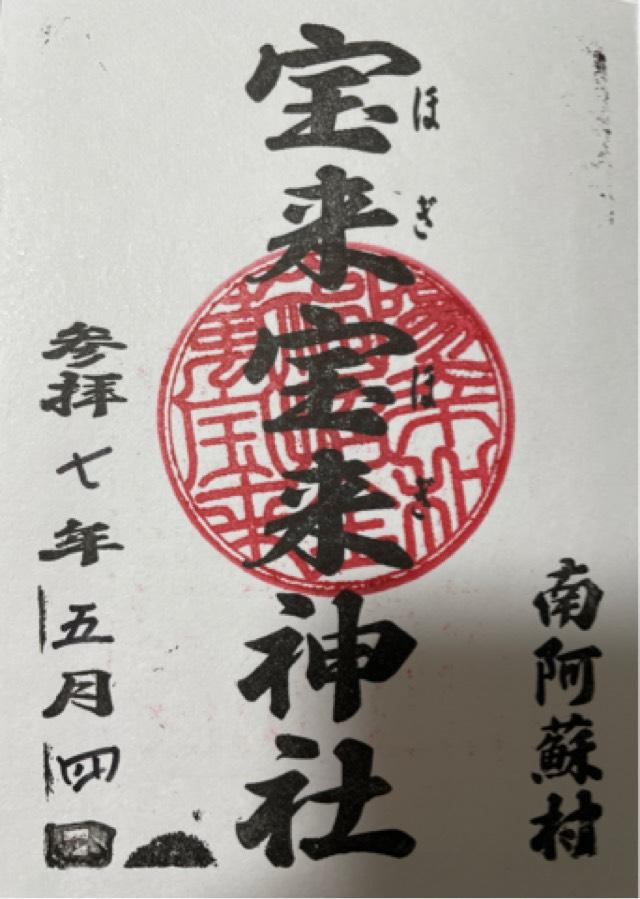 南阿蘇村
宝来宝来神社
ほぎ
ほぎ
参拝七年五月四日